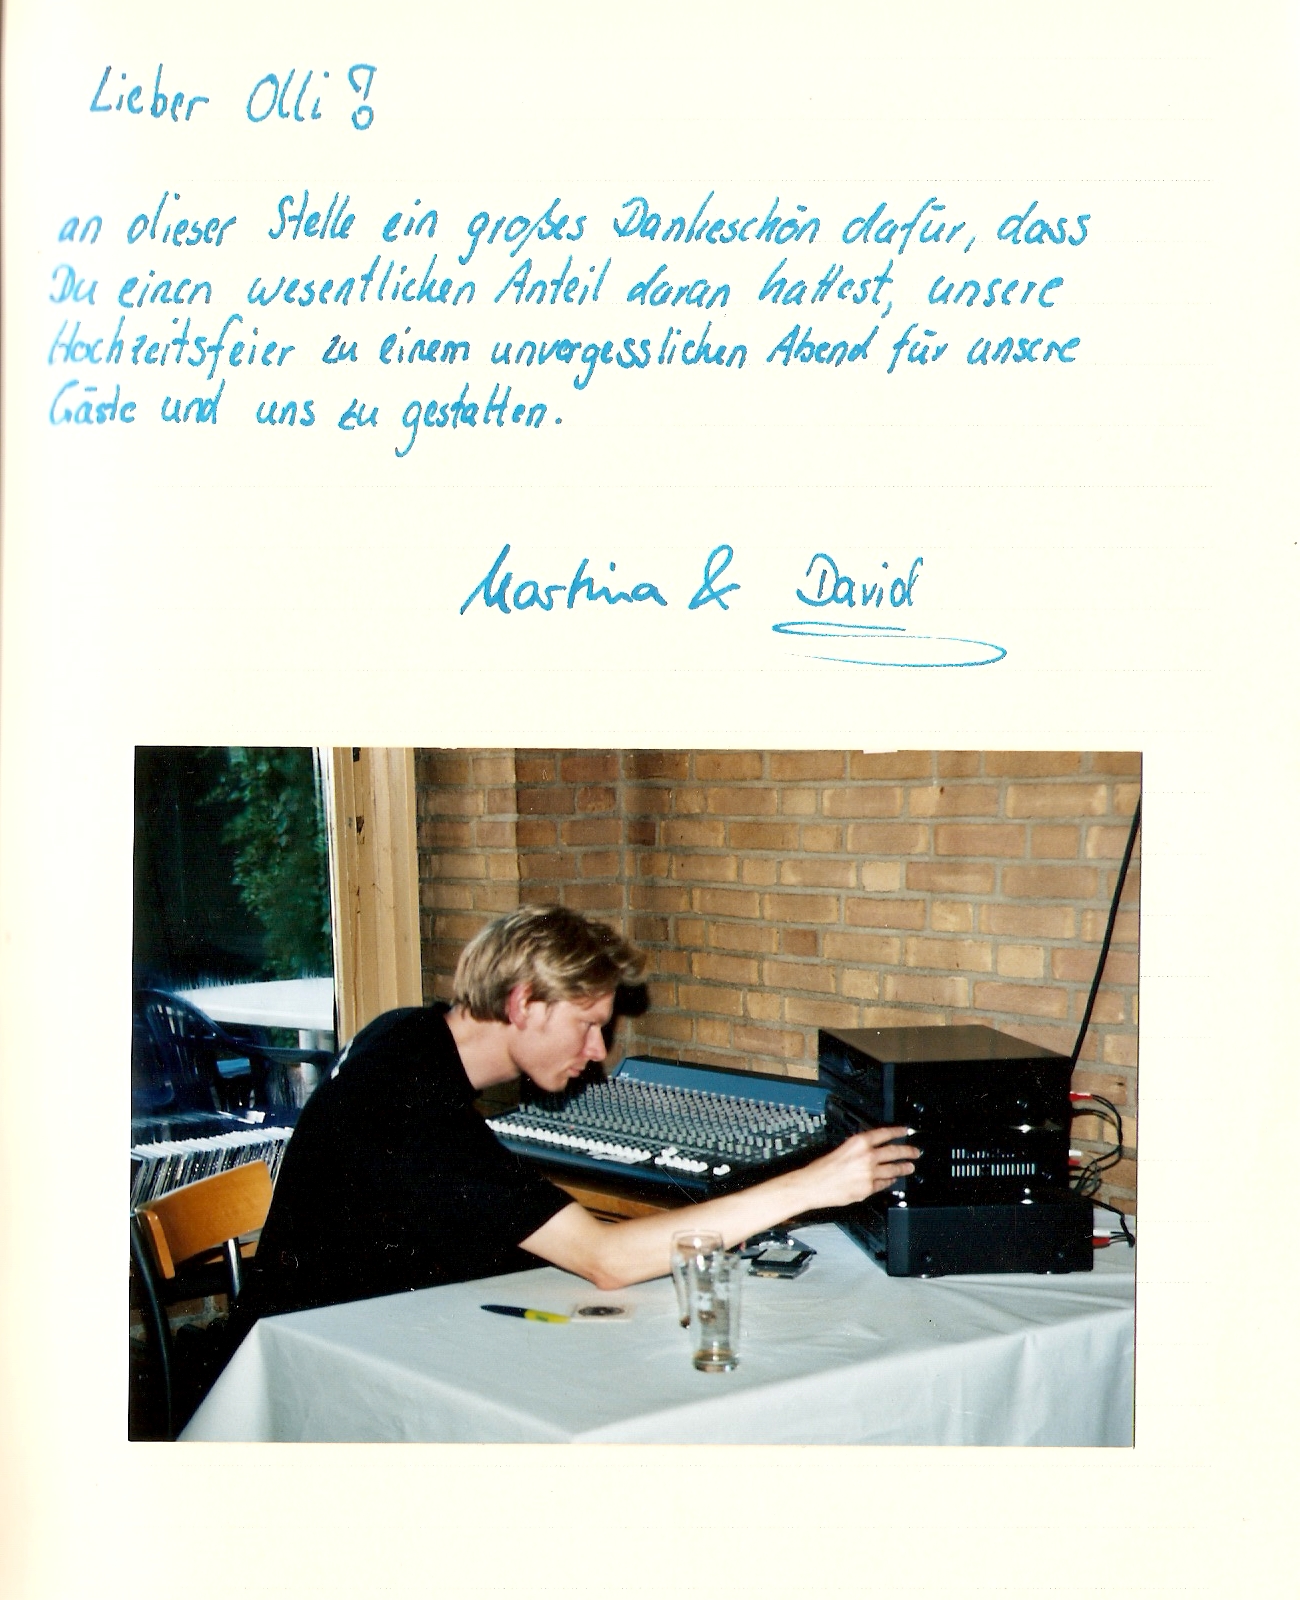 Lieber Olli!
an dieser Stelle ein großes Dankeschön dafür, dass
Du einen wesentlichen Anteil daran hattest, unsere
Hochzeitsfeier zu einem unvergesslichen Abend für unsere
Gäste und uns zu gestalten.
Martina & David